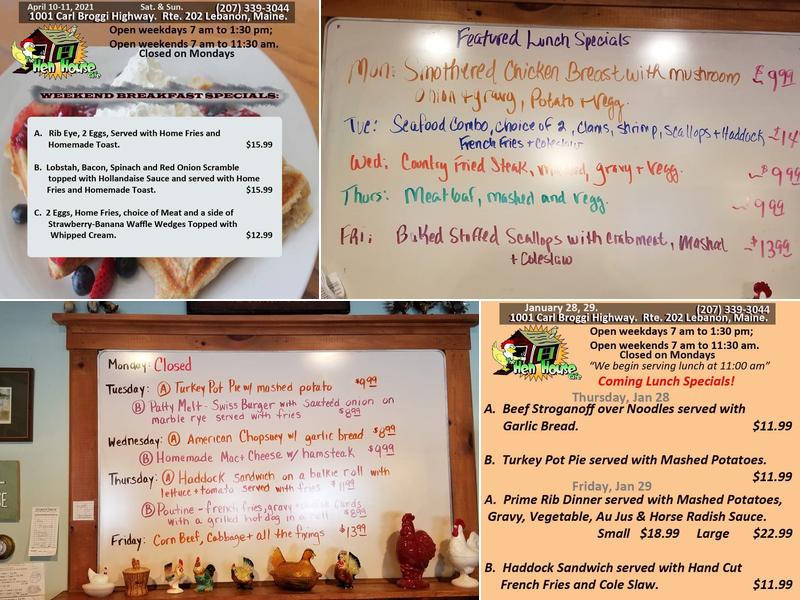 April 10-11, 2021 Sat. & Sun. (207) 339-3044
1001 Carl Broggi Highway. Rte. 202 Lebanon, Maine.
Open weekdays 7 am to 1:30 pm;
Open weekends 7 am to 11:30 am.
Closed on Mondays
Hen House
WEEKEND BREAKFAST SPECIALS:
A. Rib Eye, 2 Eggs, Served with Home Fries and
Homemade Toast. $15.99
B. Lobstah, Bacon, Spinach and Red Onion Scramble
topped with Hollandaise Sauce and served with Home
Fries and Homemade Toast. $15.99
C. 2 Eggs, Home Fries, choice of Meat and a side of
Strawberry-Banana Waffle Wedges Topped with
Whipped Cream. $12.99
Featured Lunch Specials
Mon: Smothered Chicken Breast with mushroom
Onion + gravy, Potato + Vegg. 9.99
Tue: Seafood Combo, choice of 2, clams, shrimp, Scallops + Haddock
French Fries + Coleslaw
Wed: Country Fried Steak, gravy + Vegg. $9.99
Thurs: Meatloaf, mashed and vegg. 9.99
FRI: Baked Stuffed Scallops with Crabmeat, Mashed $13.99
+ Coleslaw
Monday: Closed
Tuesday: A Turkey Pot Pie w/ mashed potato $9.99
B Patty Melt - Swiss Burger with Sauteed onion on
marble rye served with fries $8.99
Wednesday: A American Chopsuey w/ garlic bread $8.99
B Homemade Mac + Cheese w/ hamsteak $9.99
Thursday: A Haddock Sandwich on a bulkie roll with
lettuce + tomato served with fries $11.99
B Poutine - french fries, gravy + cheese curds
with a grilled hot dog in a roll $8.99
Friday: Corn Beef, Cabbage + all the fixings $13.99
January 28, 29. (207) 339-3044
1001 Carl Broggi Highway. Rte. 202 Lebanon, Maine.
Open weekdays 7 am to 1:30 pm;
Open weekends 7 am to 11:30 am.
Closed on Mondays
"We begin serving lunch at 11:00 am"
Hen House
Coming Lunch Specials!
Thursday, Jan 28
A. Beef Stroganoff over Noodles served with
Garlic Bread. $11.99
B. Turkey Pot Pie served with Mashed Potatoes.
$11.99
Friday, Jan 29
A. Prime Rib Dinner served with Mashed Potatoes,
Gravy, Vegetable, Au Jus & Horse Radish Sauce.
Small $18.99 Large $22.99
B. Haddock Sandwich served with Hand Cut
French Fries and Cole Slaw. $11.99